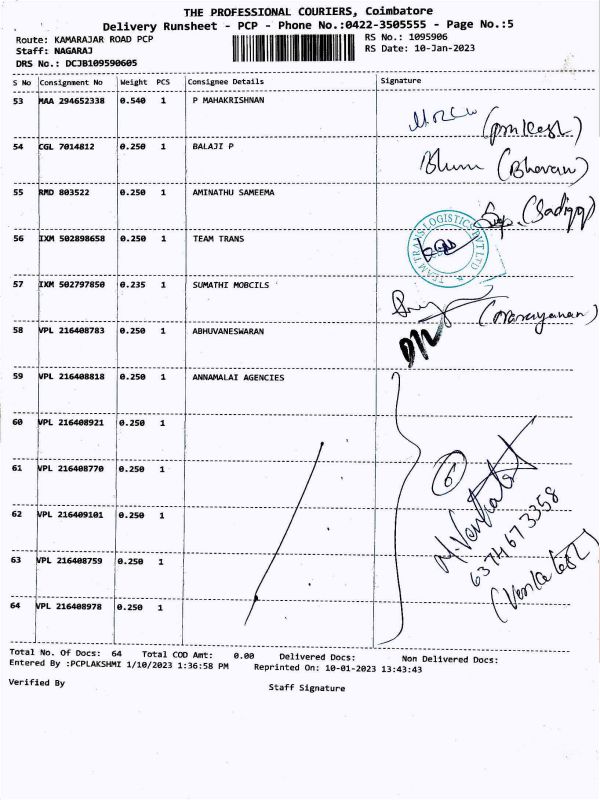 THE PROFESSIONAL COURIERS, Coimbatore
Delivery Runsheet - PCP - Phone No.:0422-3505555 - Page No.:5
Route: KAMARAJAR ROAD PCP RS No.: 1095906
Staff: NAGARAJ RS Date: 10-Jan-2023
DRS No.: DCJB109590605
S No Consignment No Weight PCS Consignee Details Signature
53 MAA 294652338 0.540 1 P MAHAKRISHNAN
54 CGL 7014812 0.250 1 BALAJI P (Bhavan)
55 RMD 803522 0.250 1 AMINATHU SAMEEMA (Sadiqq)
56 IXM 502898658 0.250 1 TEAM TRANS TEAM TRANS LOGISTICS PVT LTD
57 IXM 502797850 0.235 1 SUMATHI MOBCILS (Narayanan)
58 VPL 216408783 0.250 1 ABHUVANESWARAN D/L
59 VPL 216408818 0.250 1 ANNAMALAI AGENCIES
60 VPL 216408921 0.250 1
61 VPL 216408770 0.250 1 6
62 VPL 216409101 0.250 1 M. Venkatesh
63 VPL 216408759 0.250 1 6374673358
64 VPL 216408978 0.250 1 (Venkatesh)
Total No. Of Docs: 64 Total COD Amt: 0.00 Delivered Docs: Non Delivered Docs:
Entered By :PCPLAKSHMI 1/10/2023 1:36:58 PM Reprinted On: 10-01-2023 13:43:43
Verified By Staff Signature